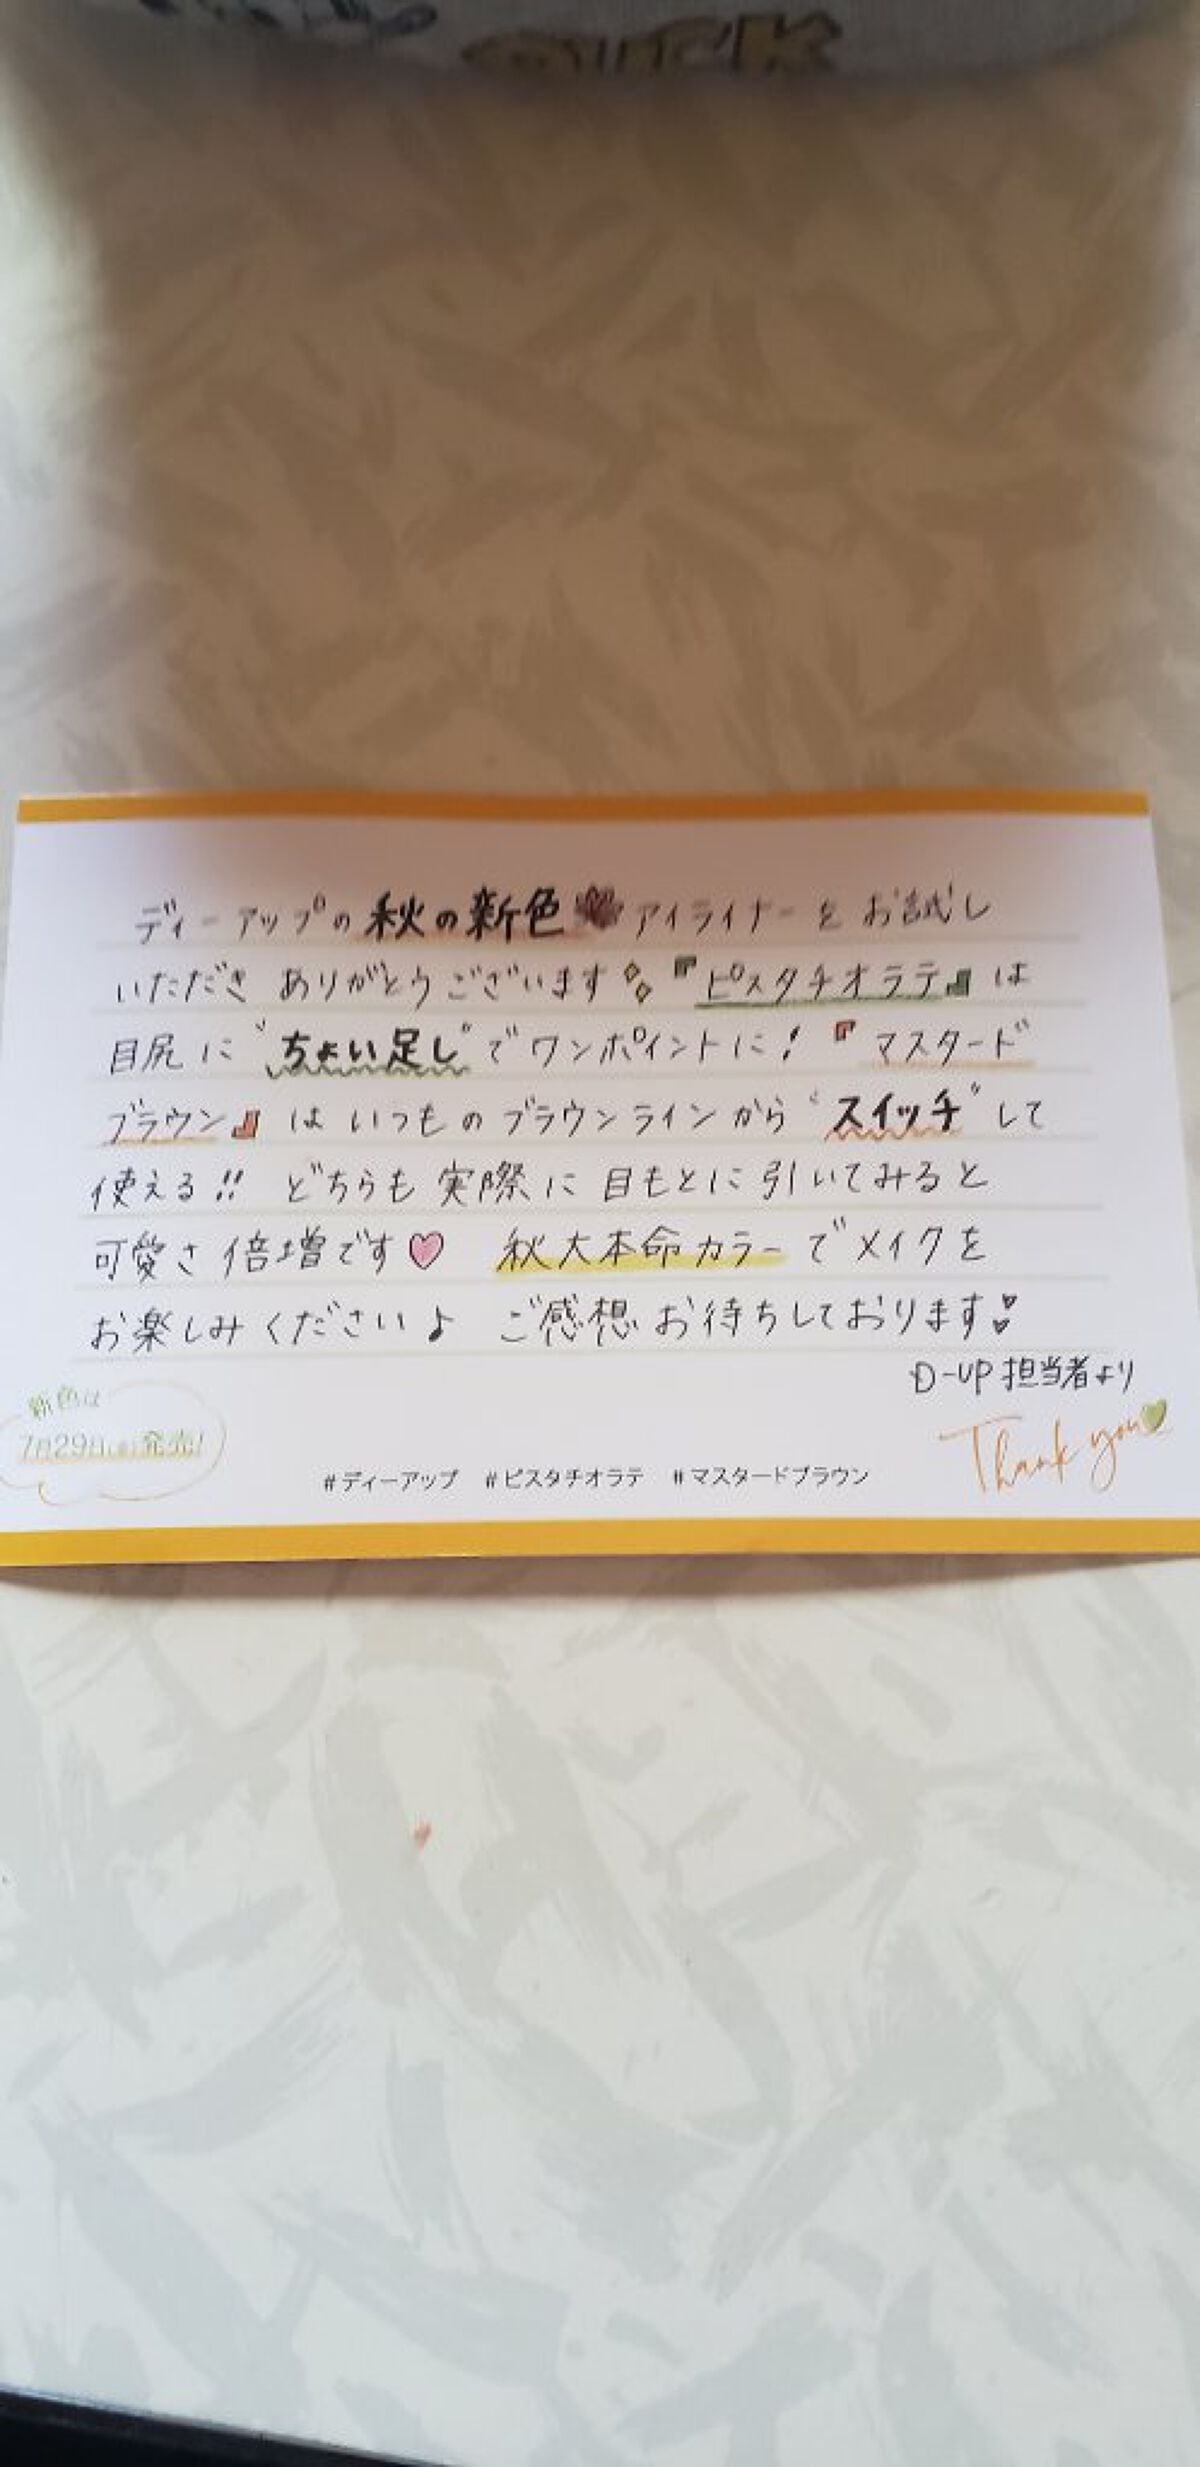 ディーアップの秋の新色アイライナーをお試し
いただきありがとうございます『ピスタチオラテ』は
目尻に"ちょい足し"でワンポイントに!『マスタード
ブラウン』はいつものブラウンラインから"スイッチ"して
使える!! どちらも実際に目もとに引いてみると
可愛さ倍増です♡ 秋大本命カラーでメイクを
お楽しみください♪ ご感想お待ちしております
D-UP担当者より
新色は
7月29日(金)発売!
Thank you
#ディーアップ #ピスタチオラテ #マスタードブラウン